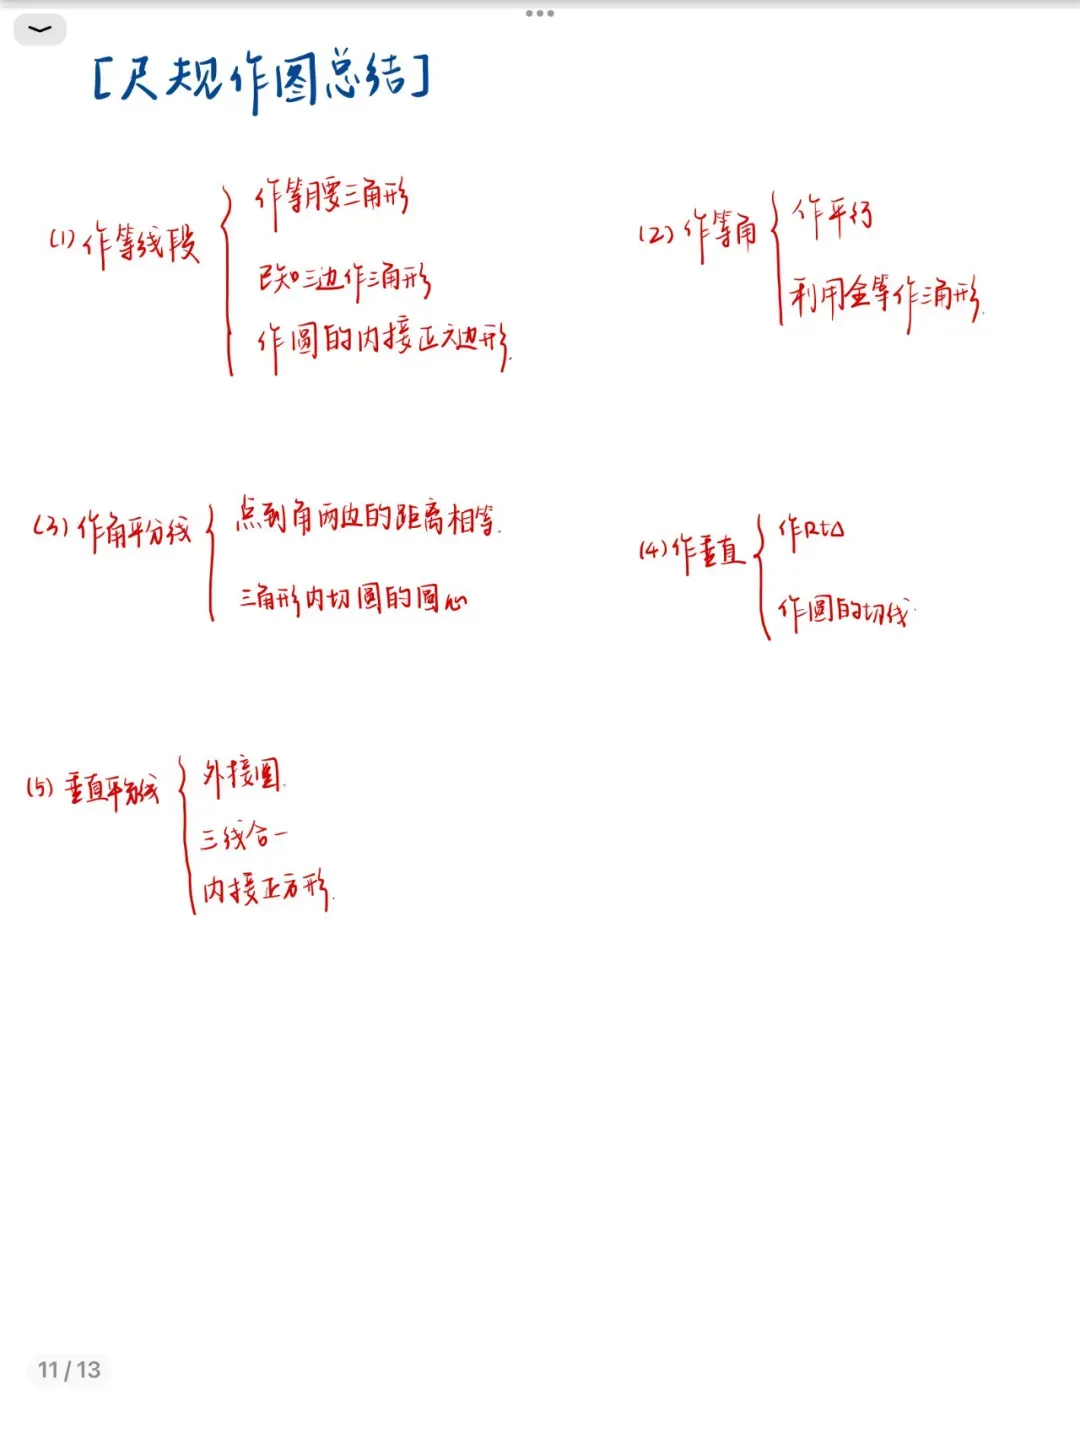 [尺规作图总结]
(1) 作等线段
作等腰三角形
已知三边作三角形
作圆的内接正六边形.
(2) 作等角
作平行
利用全等作三角形.
(3) 作角平分线
点到角两边的距离相等.
三角形内切圆的圆心
(4) 作垂直
作Rt△
作圆的切线.
(5) 垂直平分线
外接圆.
三线合一
内接正方形.
11 / 13